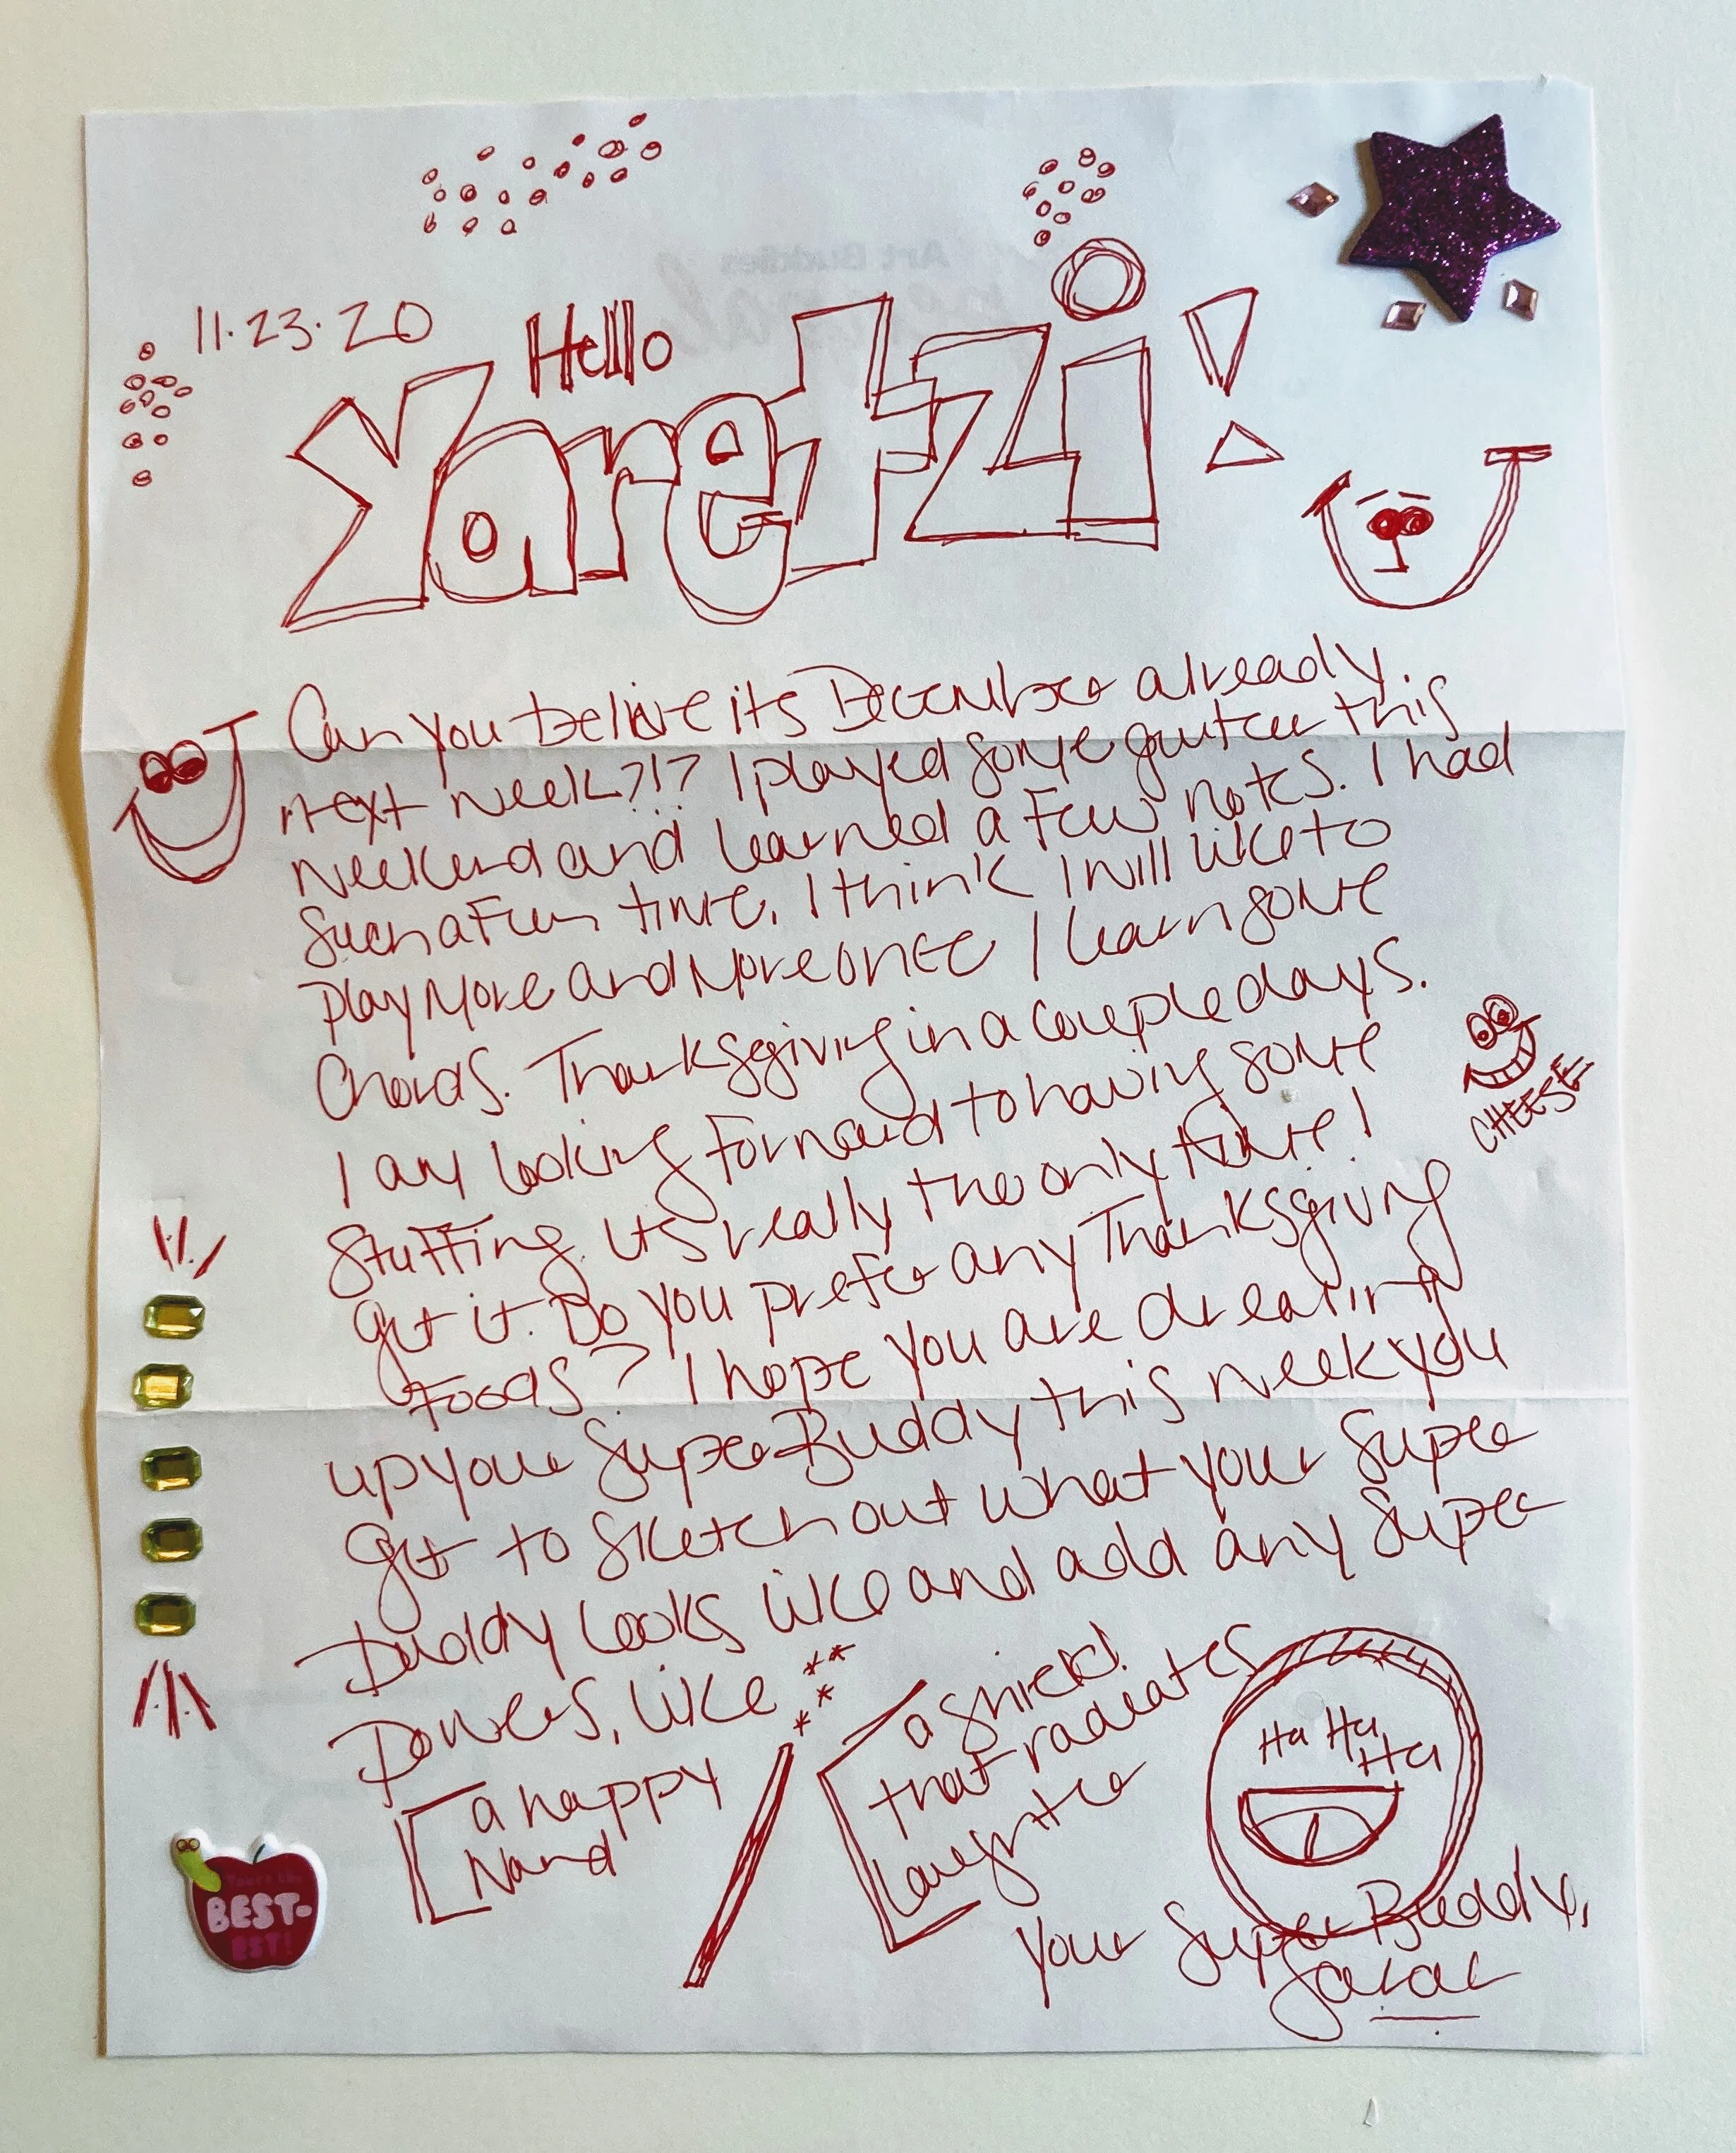 11.23.20
Hello
Yaretzi!
Can you believe its December already
next week?!? I played some guitar this
weekend and learned a few notes. I had
such a fun time. I think I will like to
play more and more once I learn some
chords. Thanksgiving in a couple days.
I am looking forward to having some
stuffing. Its really the only time I
get it. Do you prefer any Thanksgiving
foods? I hope you are dreaming
up your Super Buddy this week you
get to sketch out what your Super
Buddy looks like and add any super
powers, like
a happy
wand
a shield
that radiates
laughter
Ha Ha
Ha
CHEESE
BEST-
EST!
Your Super Buddy,